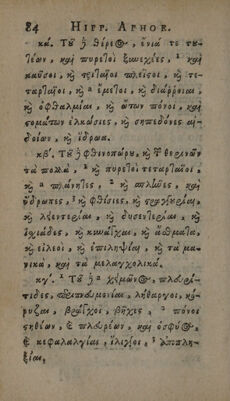 84 HIPP. APHOR.
κά. Τοῦ ἢ θέρεος, ἔνιά τε του-
τέων, καὶ πυρετοὶ ξυνεχέες, καὶ
καῦσοι, καὶ τριταῖοι πλεῖσοι, καὶ τε-
ταρταῖοι, καὶ ἔμετοι, καὶ διάρροιαι,
καὶ ὀφθαλμίαι, καὶ ὤτων πόνοι, καὶ
ςομάτων ἑλκώσιες, καὶ σηπεδόνες αἰ-
δοίων, καὶ ἵδρωα.
κβ΄. Τοῦ ἢ φθινοπώρου, καὶ τῶν θερινῶν
τὰ πολλά, καὶ πυρετοὶ τεταρταῖοι,
καὶ πλάνητες, καὶ σπλῆνες, καὶ
ὕδρωπες, καὶ φθίσιες, καὶ ςραγγουρίαι,
καὶ λειεντερίαι, καὶ δυσεντερίαι, καὶ
ἰσχιάδες, καὶ κυνάγχαι, καὶ ἄσθματα,
καὶ εἰλεοὶ, καὶ ἐπιληψίαι, καὶ τὰ μα-
νικὰ, καὶ τὰ μελαγχολικά.
κγ΄. Τοῦ ἢ χειμῶνος, πλευρί-
τιδες, περιπνευμονίαι, λήθαργοι, κό-
ρυζαι, βράγχοι, βῆχες, πόνοι
ςηθέων, καὶ πλευρέων, καὶ ὀσφύος,
καὶ κεφαλαλγίαι, ἴλιγγοι, ἀποπλη-
ξίαι,